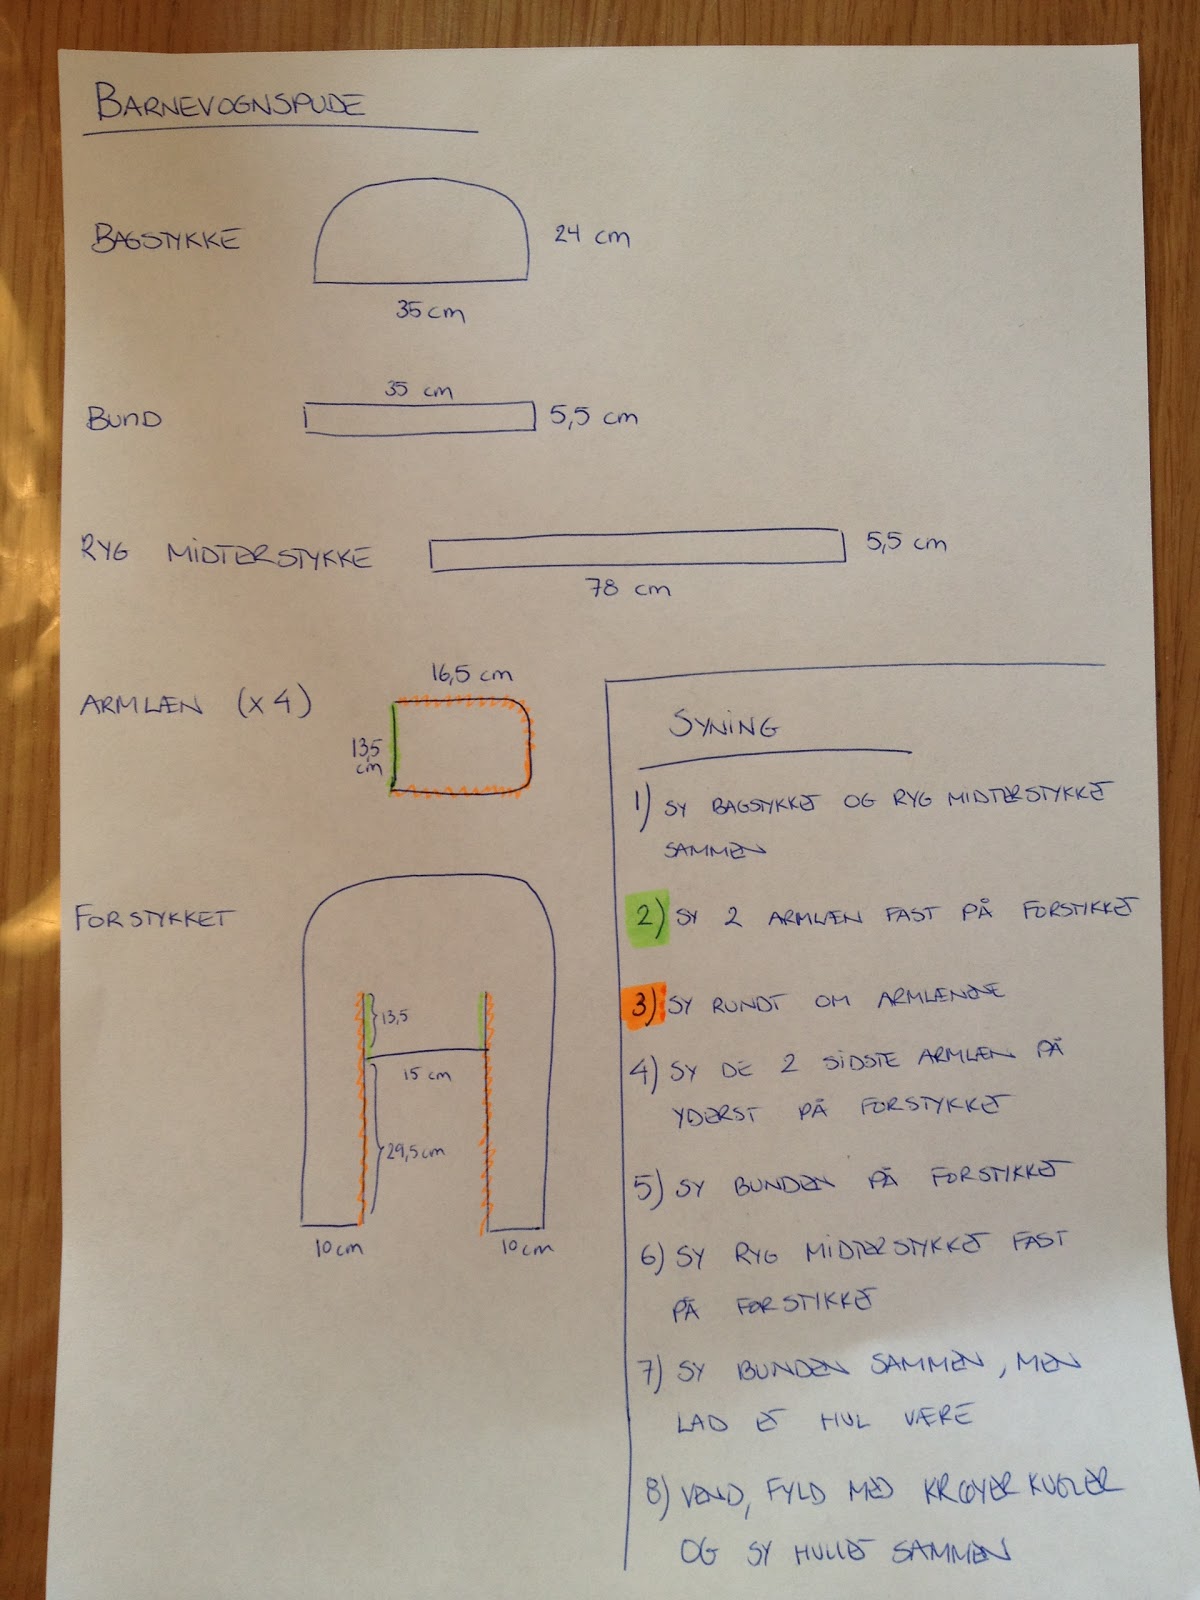 BARNEVOGNSPUDE
BAGSTYKKE
24 cm
35 cm
35 cm
BUND
5,5 cm
RYG MIDTERSTYKKE
5,5 cm
78 cm
16,5 cm
ARMLÆN (X4)
13,5
cm
FORSTYKKET
13,5
15 cm
29,5 cm
10 cm
10 cm
SYNING
1) SY BAGSTYKKET OG RYG MIDTERSTYKKET
SAMMEN
2) SY 2 ARMLÆN FAST PÅ FORSTYKKET
3) SY RUNDT OM ARMLÆNENE
4) SY DE 2 SIDSTE ARMLÆN PÅ
YDERST PÅ FORSTYKKET
5) SY BUNDEN PÅ FORSTYKKET
6) SY RYG MIDTERSTYKKET FAST
PÅ FORSTYKKET
7) SY BUNDEN SAMMEN, MEN
LAD ET HUL VÆRE
8) VEND, FYLD MED KRØYER KUGLER
OG SY HULLET SAMMEN